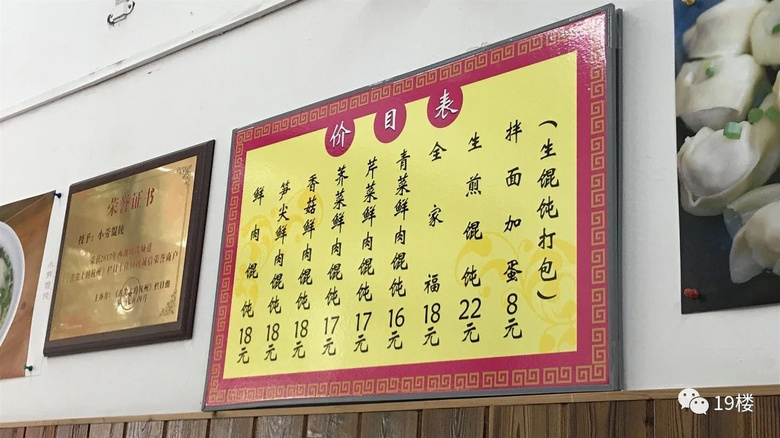 价目表
鲜肉馄饨18元
笋尖鲜肉馄饨18元
香菇鲜肉馄饨18元
荠菜鲜肉馄饨17元
芹菜鲜肉馄饨17元
青菜鲜肉馄饨16元
全家福18元
生煎馄饨22元
拌面加蛋8元
(生馄饨打包)
荣誉证书
授予：小常馄饨
19楼